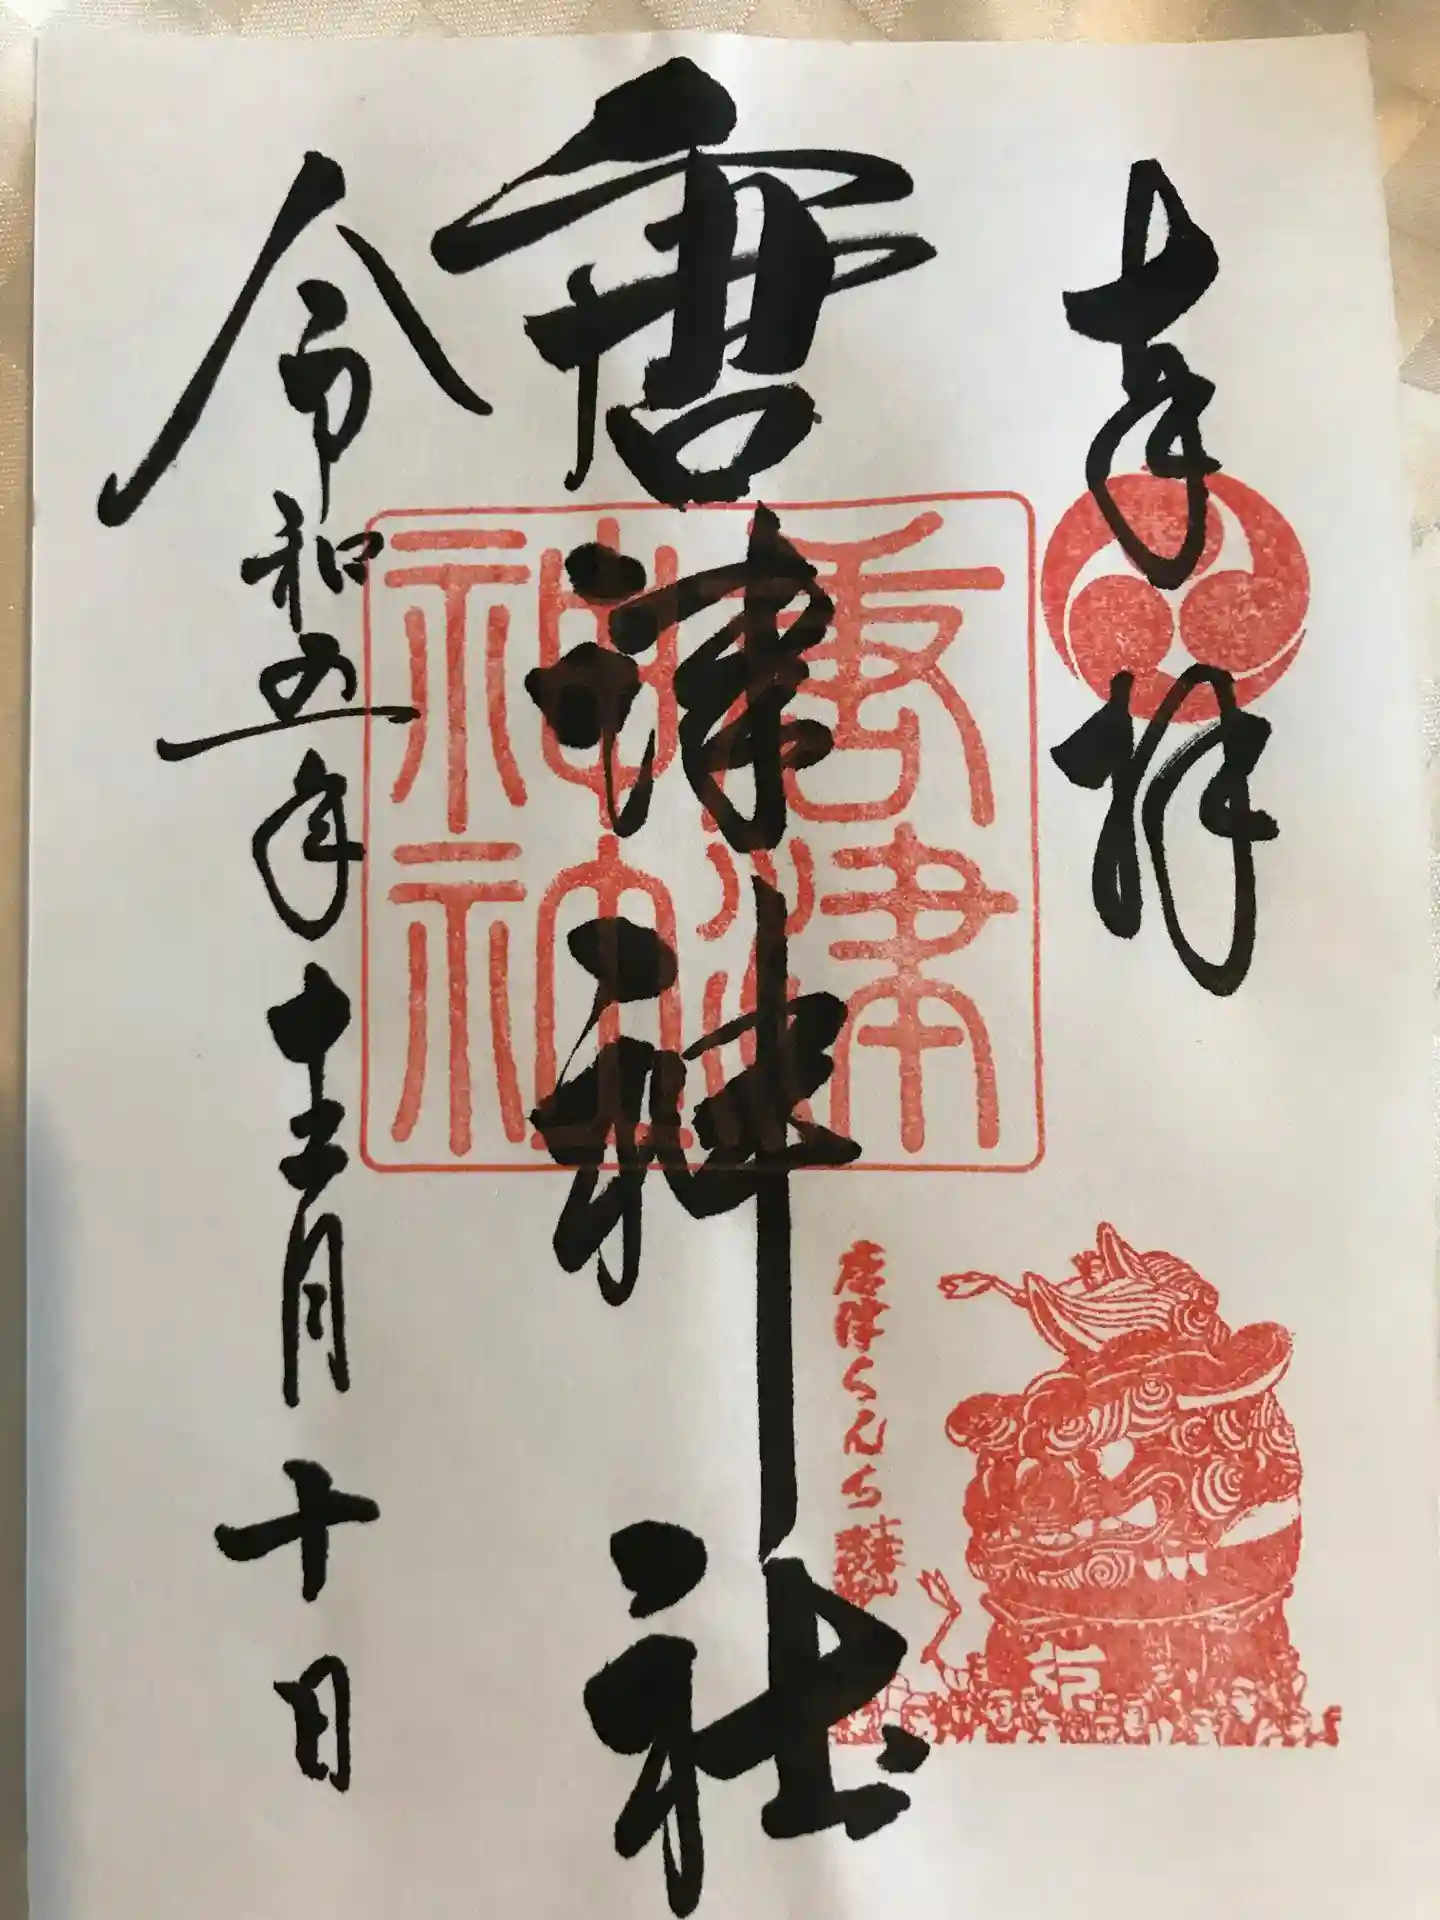 奉拝
唐津神社
唐津神社
唐津くんち
令和五年十二月十日